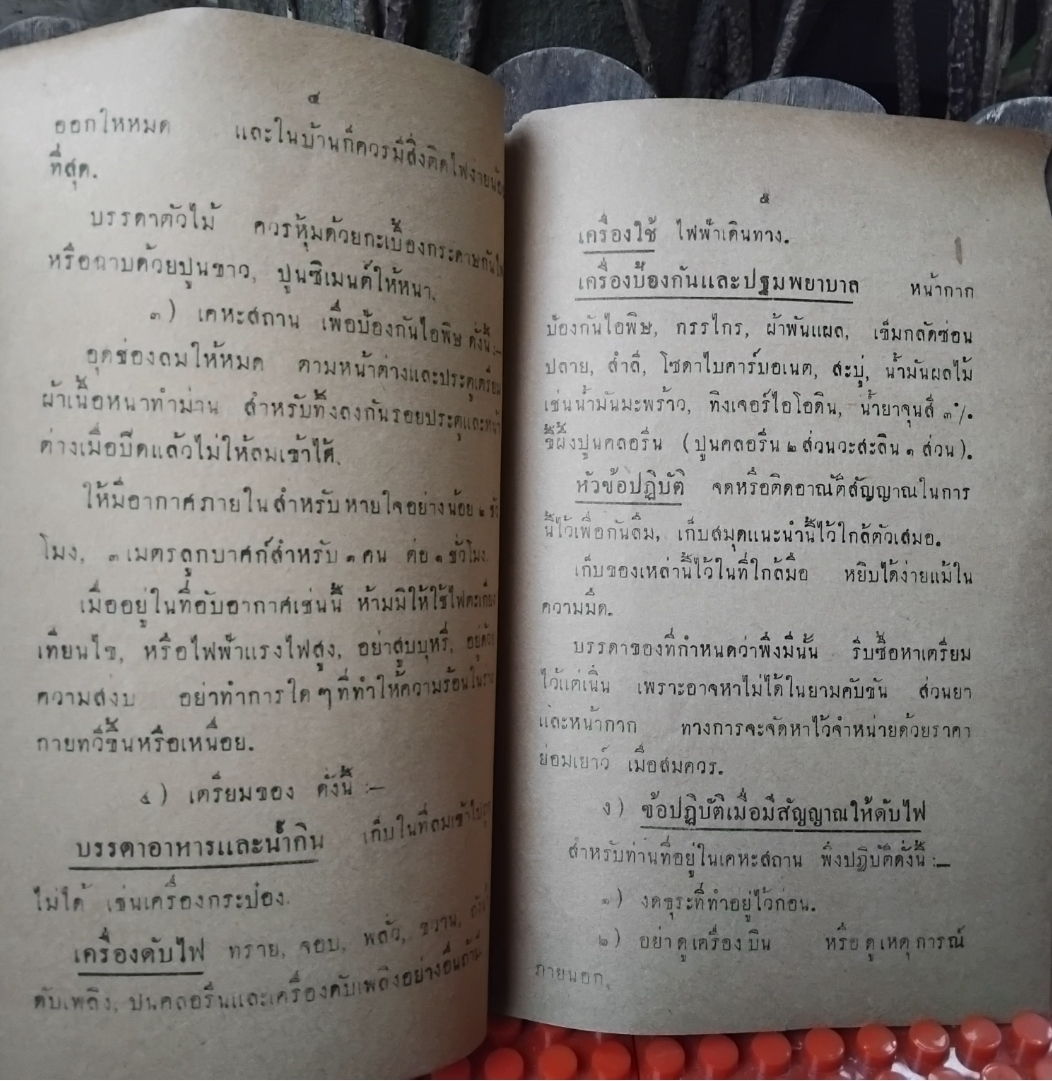 ๔
ออกให้หมด และในบ้านก็ควรมีสิ่งติดไฟง่ายน้อย
ที่สุด.
บรรดาตัวไม้ ควรหุ้มด้วยกะเบื้องกระดาษกันไฟ
หรือฉาบด้วยปูนขาว, ปูนซิเมนต์ให้หนา.
๓) เคหะสถาน เพื่อป้องกันไอพิษ ดั่งนี้:—
อุดช่องลมให้หมด ตามหน้าต่างและประตูเตรียม
ผ้าเนื้อหนาทำม่าน สำหรับทิ้งลงกันรอยประตูและหน้า
ต่างเมื่อปิดแล้วไม่ให้ลมเข้าได้.
ให้มีอากาศภายในสำหรับหายใจอย่างน้อย ๒ ชั่ว
โมง, ๓ เมตรลูกบาศก์สำหรับ ๑ คน ต่อ ๑ ชั่วโมง.
เมื่ออยู่ในที่อับอากาศเช่นนี้ ห้ามมิให้ใช้ไฟตะเกียง
เทียนไข, หรือไฟฟ้าแรงไฟสูง, อย่าสูบบุหรี่, อยู่ด้วย
ความสงบ อย่าทำการใด ๆ ที่ทำให้ความร้อนในร่าง
กายทวีขึ้นหรือเหนื่อย.
๔) เตรียมของ ดั่งนี้:—
บรรดาอาหารและน้ำกิน เก็บในที่ลมเข้าไป
ไม่ได้ เช่นเครื่องกระป๋อง.
เครื่องดับไฟ ทราย, จอบ, พลั่ว, ขวาน,
ดับเพลิง, ปูนคลอรีนและเครื่องดับเพลิงอย่างอื่นถ้ามี
๕
เครื่องใช้ ไฟฟ้าเดินทาง.
เครื่องป้องกันและปฐมพยาบาล หน้ากาก
ป้องกันไอพิษ, กรรไกร, ผ้าพันแผล, เข็มกลัดซ่อน
ปลาย, สำลี, โซดาไบคาร์บอเนต, สะบู่, น้ำมันผลไม้
เช่นน้ำมันมะพร้าว, ทิงเจอร์ไอโอดิน, น้ำยาจุนสี ๓%.
ขี้ผึ้งปูนคลอรีน (ปูนคลอรีน ๒ ส่วนวะสะลิน ๑ ส่วน).
หัวข้อปฏิบัติ จดหรือติดอาณัติสัญญาณในการ
นี้ไว้เพื่อกันลืม, เก็บสมุดแนะนำนี้ไว้ใกล้ตัวเสมอ.
เก็บของเหล่านี้ไว้ในที่ใกล้มือ หยิบได้ง่ายแม้ใน
ความมืด.
บรรดาของที่กำหนดว่าพึงมีนั้น รีบซื้อหาเตรียม
ไว้แต่เนิ่น เพราะอาจหาไม่ได้ในยามคับขัน ส่วนยา
และหน้ากาก ทางการจะจัดหาไว้จำหน่ายด้วยราคา
ย่อมเยาว์ เมื่อสมควร.
ง) ข้อปฏิบัติเมื่อมีสัญญาณให้ดับไฟ
สำหรับท่านที่อยู่ในเคหะสถาน พึงปฏิบัติดั่งนี้:—
๑) งดธุระที่ทำอยู่ไว้ก่อน.
๒) อย่าดูเครื่องบิน หรือดูเหตุการณ์
ภายนอก.